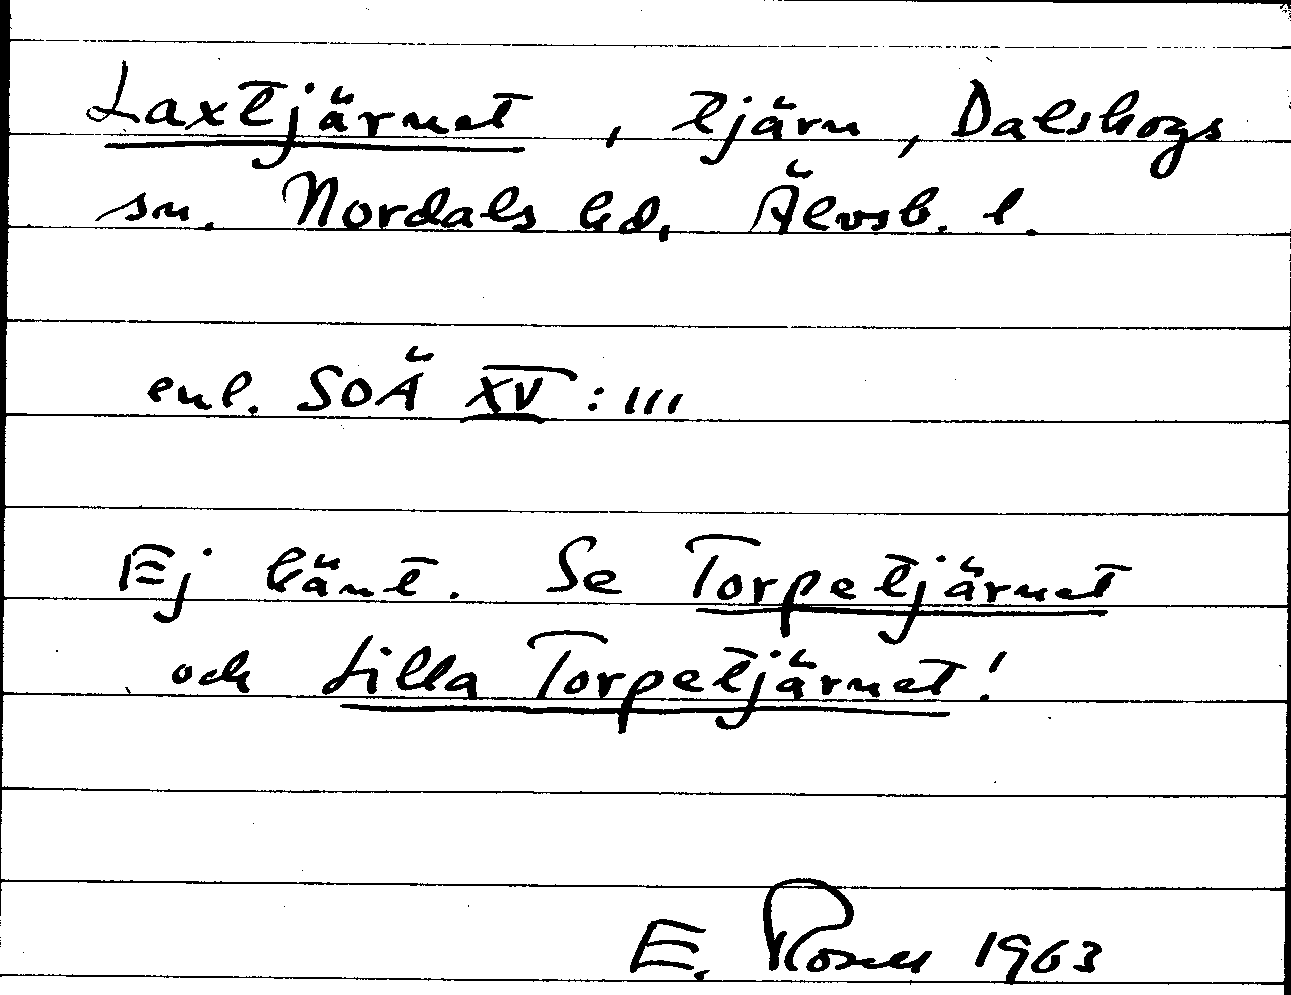 Laxtjärnet, tjärn, Dalskogs
sn. Nordals hd, Älvsb. l.
enl. SOÄ XV : 111
Ej känt. Se Torpetjärnet
och Lilla Torpetjärnet!
E. Rosell 1963